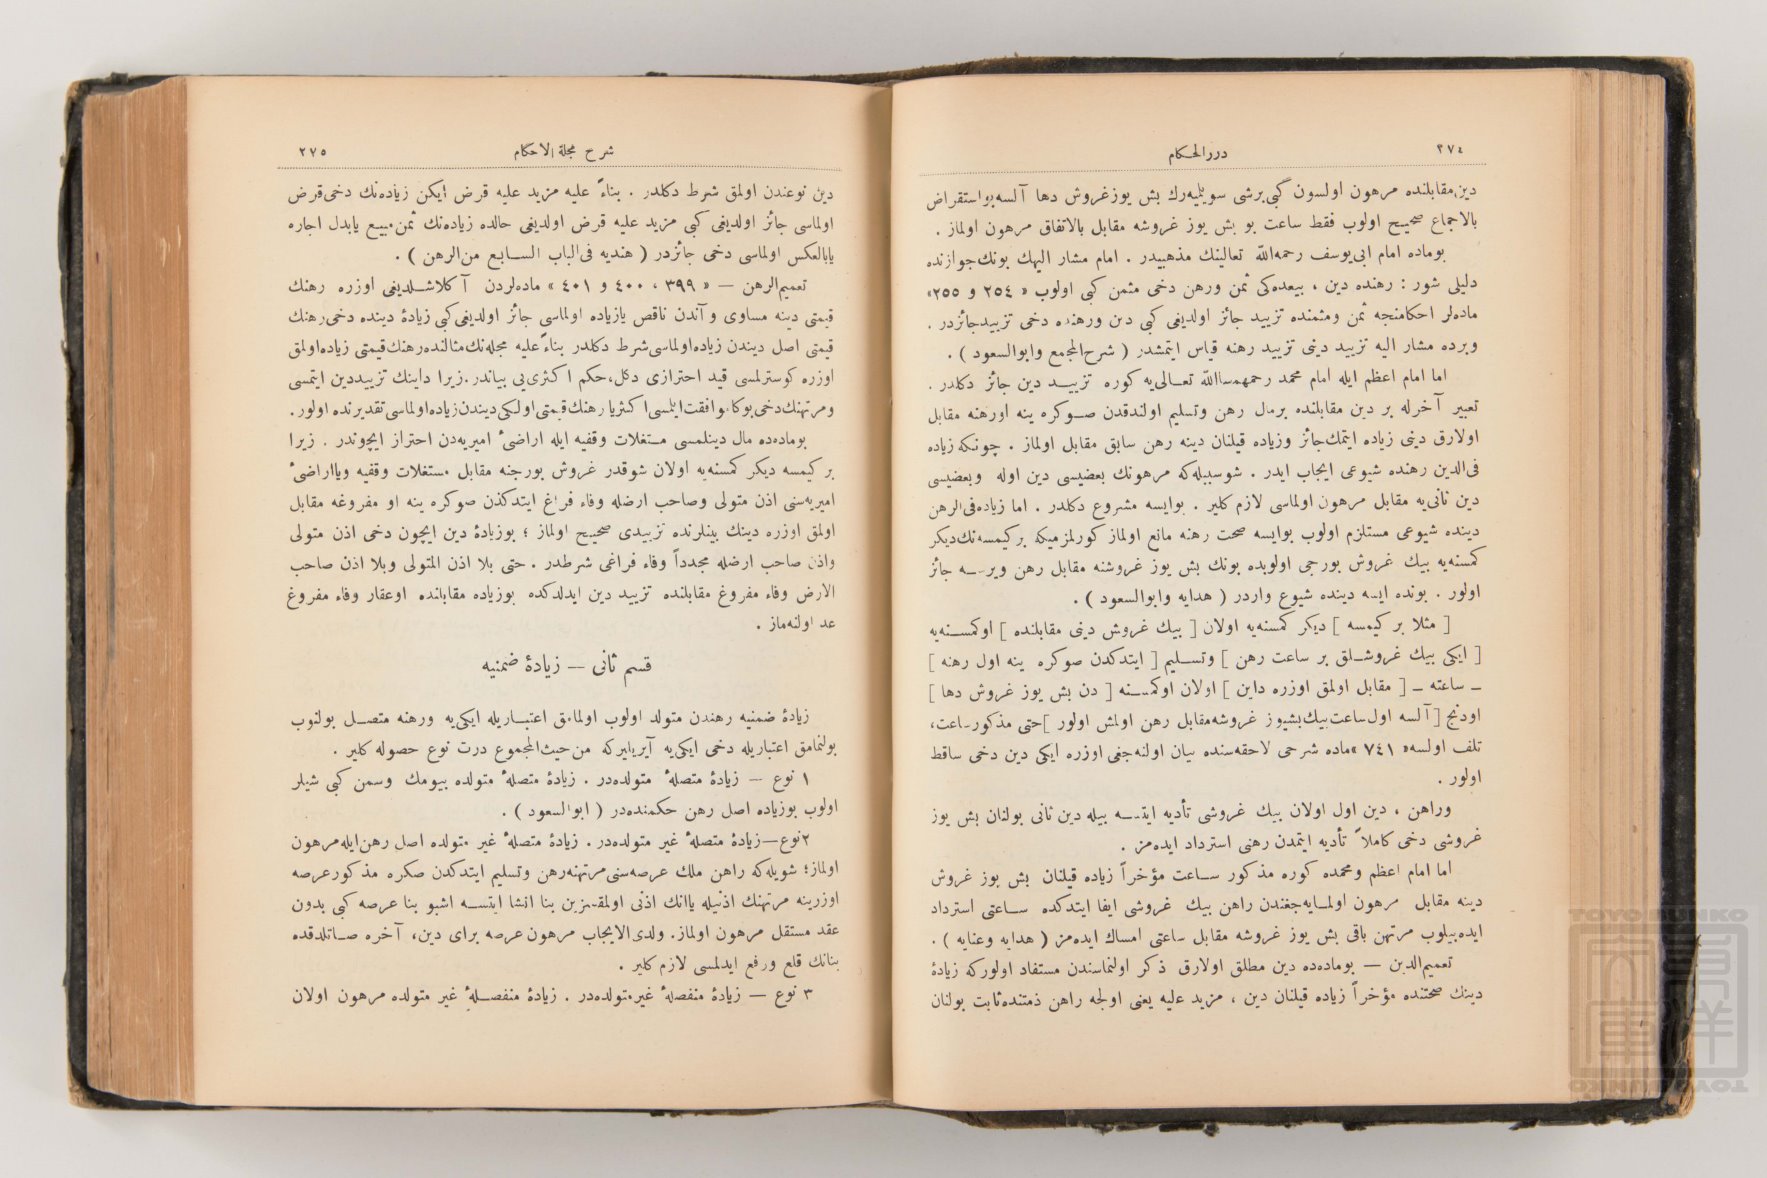 ٢٧٤
دررالحكام
دين مقابلنده مرهون اولسون گبى برشى سويليه‌رك بش يوزغروش دها آلسه‌بواستقراض
بالاجماع صحيح اولوب فقط ساعت بو بش يوز غروشه مقابل بالاتفاق مرهون اولماز .
بوماده امام ابى‌يوسف رحمه‌الله تعالينك مذهبيدر . امام مشار اليهك بونك‌جوازنده
دليلى شور : رهنده دين ، بيعده‌كى ثمن ورهن دخى مثمن كبى اولوب « ٢٥٤ و ٢٥٥»
ماده‌لر احكامنجه ثمن ومثمنده تزييد جائز اولديغى كبى دين ورهنده دخى تزييدجائزدر .
وبرده مشار اليه تزييد دينى تزييد رهنه قياس ايتمشدر ( شرح‌المجمع وابوالسعود ) .
اما امام اعظم ايله امام محمد رحمهمساالله تعـالى‌يه كوره تزييـد دين جائز دكلدر .
تعبير آخرله بر دين مقابلنده برمال رهن وتسليم اولندقدن صـوكره ينه اورهنه مقابل
اولارق دينى زياده ايتمك‌جائز وزياده قيلنان دينه رهن سابق مقابل اولماز . چونكه زياده
فى‌الدين رهنده شيوعى ايجاب ايدر . شوسببله‌كه مرهونك بعضيسى دين اوله وبعضيسى
دين ثانى‌يه مقابل مرهون اولماسى لازم كلير . بوايسه مشروع دكلدر . اما زياده‌فى‌الرهن
دينده شيوعى مستلزم اولوب بوايسه صحت رهنه مانع اولماز كورلمزميكه بر كيمسه‌نك‌ديكر
كمسنه‌يه بيك غروش بورجى اولوبده بونك بش يوز غروشنه مقابل رهن ويرسـه جائز
اولور . بونده ايسه دينده شيوع واردر ( هدايه وابوالسعود ) .
[ مثلا بر كيمسه ] ديكر كمسنه‌يه اولان [ بيك غروش دينى مقابلنده ] اوكمسـنه‌يه
[ ايكى بيك غروشـلق بر ساعت رهن ] وتسـليم [ ايتدكدن صوكره ينه اول رهنه ]
ـ ساعته ـ [ مقابل اولمق اوزره داين ] اولان اوكمسـنه [ دن بش يوز غروش دها ]
اودنج [ آلسه اول‌ساعت‌بيك‌بشيوز غروشه‌مقابل رهن اولمش اولور ]حتى مذكورساعت،
تلف اولسه« ٧٤١ »ماده شرحى لاحقه‌سنده بيان اولنه‌جغى اوزره ايكى دين دخى ساقط
اولور .
وراهن ، دين اول اولان بيك غروشى تأديه ايتسـه بيله دين ثانى بولنان بش يوز
غروشى دخى كاملاً تأديه ايتمدن رهنى استرداد ايده‌مز .
اما امام اعظم ومحمده كوره مذكور سـاعت مؤخراً زياده قيلنان بش يوز غروش
دينه مقابل مرهون اولمـايه‌جغندن راهن بيك غروشى ايفا ايتدكده سـاعتى استرداد
ايده‌بيلوب مرتهن باقى بش يوز غروشه مقابل ساعتى امساك ايده‌مز ( هدايه وعنايه ) .
تعميم‌الدين — بوماده‌ده دين مطلق اولارق ذكر اولنماسندن مستفاد اولوركه زيادهٔ
دينك صحتنده مؤخراً زياده قيلنان دين ، مزيد عليه يعنى اولجه راهن ذمتنده‌ثابت بولنان
شرح مجلة الاحكام
٢٧٥
دين نوعندن اولمق شرط دكلدر . بناءً عليه مزيد عليه قرض ايكن زياده‌نك دخى‌قرض
اولماسى جائز اولديغى كبى مزيد عليه قرض اولديغى حالده زياده‌نك ثمن‌مبيع يابدل اجاره
يابالعكس اولماسى دخى جائزدر ( هنديه فى‌الباب السـابع من‌الرهن ) .
تعميم‌الرهن — « ٣٩٩ ، ٤٠٠ و ٤٠١ » ماده‌لردن آكلاشـلديغى اوزره رهنك
قيمتى دينه مساوى و آندن ناقص يازياده اولماسى جائز اولديغى‌كبى زيادهٔ دينده دخى‌رهنك
قيمتى اصل ديندن زياده‌اولماسى‌شرط دكلدر بناءً عليه مجله‌نك‌مثالنده‌رهنك‌قيمتى زياده‌اولمق
اوزره كوسترلمسى قيد احترازى دكل،حكم اكثرى‌يى بياندر.زيرا داينك تزييددين ايتمسى
ومرتهنك‌دخى‌بوكاموافقت‌ايلمسى‌اكثريا رهنك‌قيمتى‌اولكى‌ديندن‌زياده‌اولماسى‌تقديرنده اولور.
بوماده‌ده مال دينلمسى مستغلات وقفيه ايله اراضىٔ اميريه‌دن احتراز ايچوندر . زيرا
بر كيمسه ديكر كمسنه‌يه اولان شوقدر غروش بورجنه مقابل مستغلات وقفيه وياااراضىٔ
اميريه‌سنى اذن متولى وصاحب ارضله وفاء فراغ ايتدكدن صوكره ينه او مفروغه مقابل
اولمق اوزره دينك بينلرنده تزييدى صحيح اولماز ؛ بوزيادهٔ دين ايچون دخى اذن متولى
واذن صاحب ارضله مجدداً وفاء فراغى شرطدر . حتى بلا اذن المتولى وبلا اذن صاحب
الارض وفاء مفروغ مقابلنده تزييد دين ايدلدكده بوزياده مقابلنده اوعقار وفاء مفروغ
عد اولنه‌ماز .
قسم ثانى — زيادهٔ ضمنيه
زيادهٔ ضمنيه رهندن متولد اولوب اولمامق اعتبـاريله ايكى‌يه ورهنه متصـل بولنوب
بولنمامق اعتباريله دخى ايكى‌يه آيريليركه من‌حيث‌المجموع درت نوع حصوله كلير .
١ نوع — زيادهٔ متصلهٔ متولده‌در . زيادهٔ متصلهٔ متولده بيومك وسمن كبى شيلر
اولوب بوزياده اصل رهن حكمنده‌در ( ابوالسعود ) .
٢نوع—زيادهٔ متصلهٔ غير متولده‌در . زيادهٔ متصلهٔ غير متولده اصل رهن‌ايله‌مرهون
اولماز؛ شويله‌كه راهن ملك عرصه‌سنى‌مرتهنه‌رهن وتسليم ايتدكدن صكره مذكورعرصه
اوزرينه مرتهنك اذنيله ياانك اذنى اولمقسزين بنا انشا ايتسـه اشبو بنا عرصه كبى بدون
عقد مستقل مرهون اولماز. ولدى‌الايجاب مرهون عرصه براى دين، آخره صـاتلدقده
بنانك قلع ورفع ايدلمسى لازم كلير .
٣ نوع — زيادهٔ منفصلهٔ غيرمتولده‌در . زيادهٔ منفصـلهٔ غير متولده مرهون اولان
TOYO BUNKO